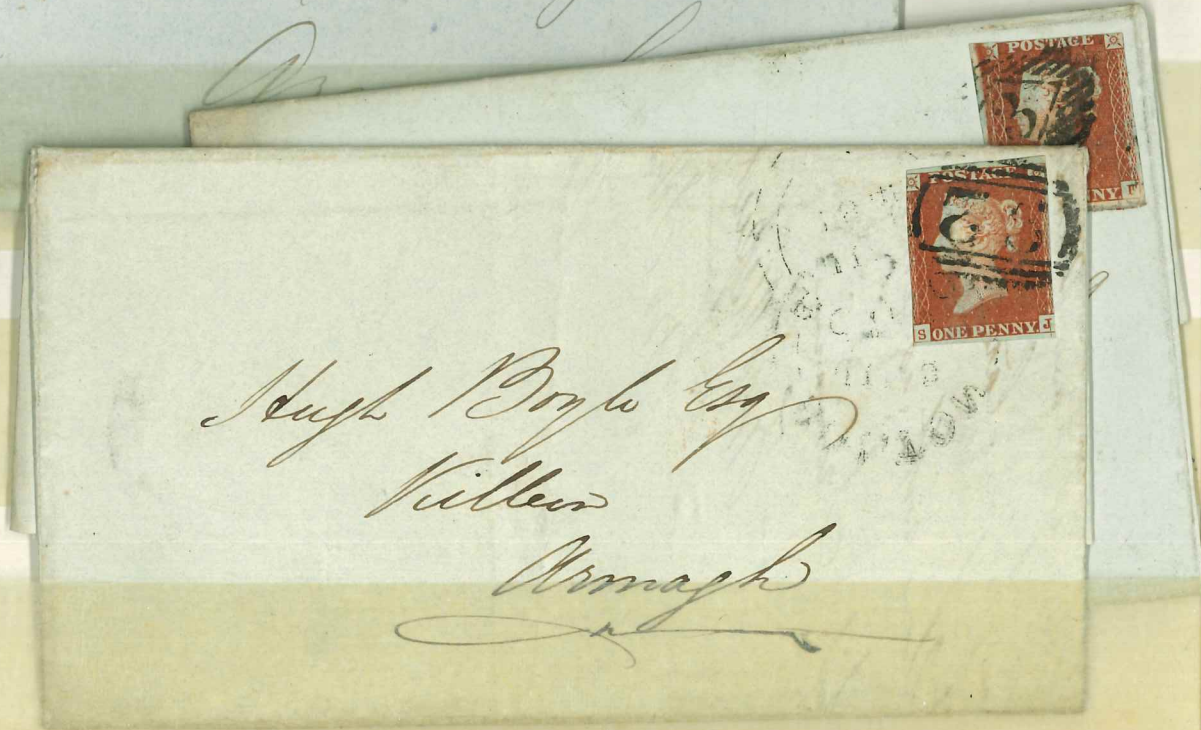 POSTAGE
NY
POSTAGE
S ONE PENNY J
Hugh Boyle Esq
Killeen
Armagh